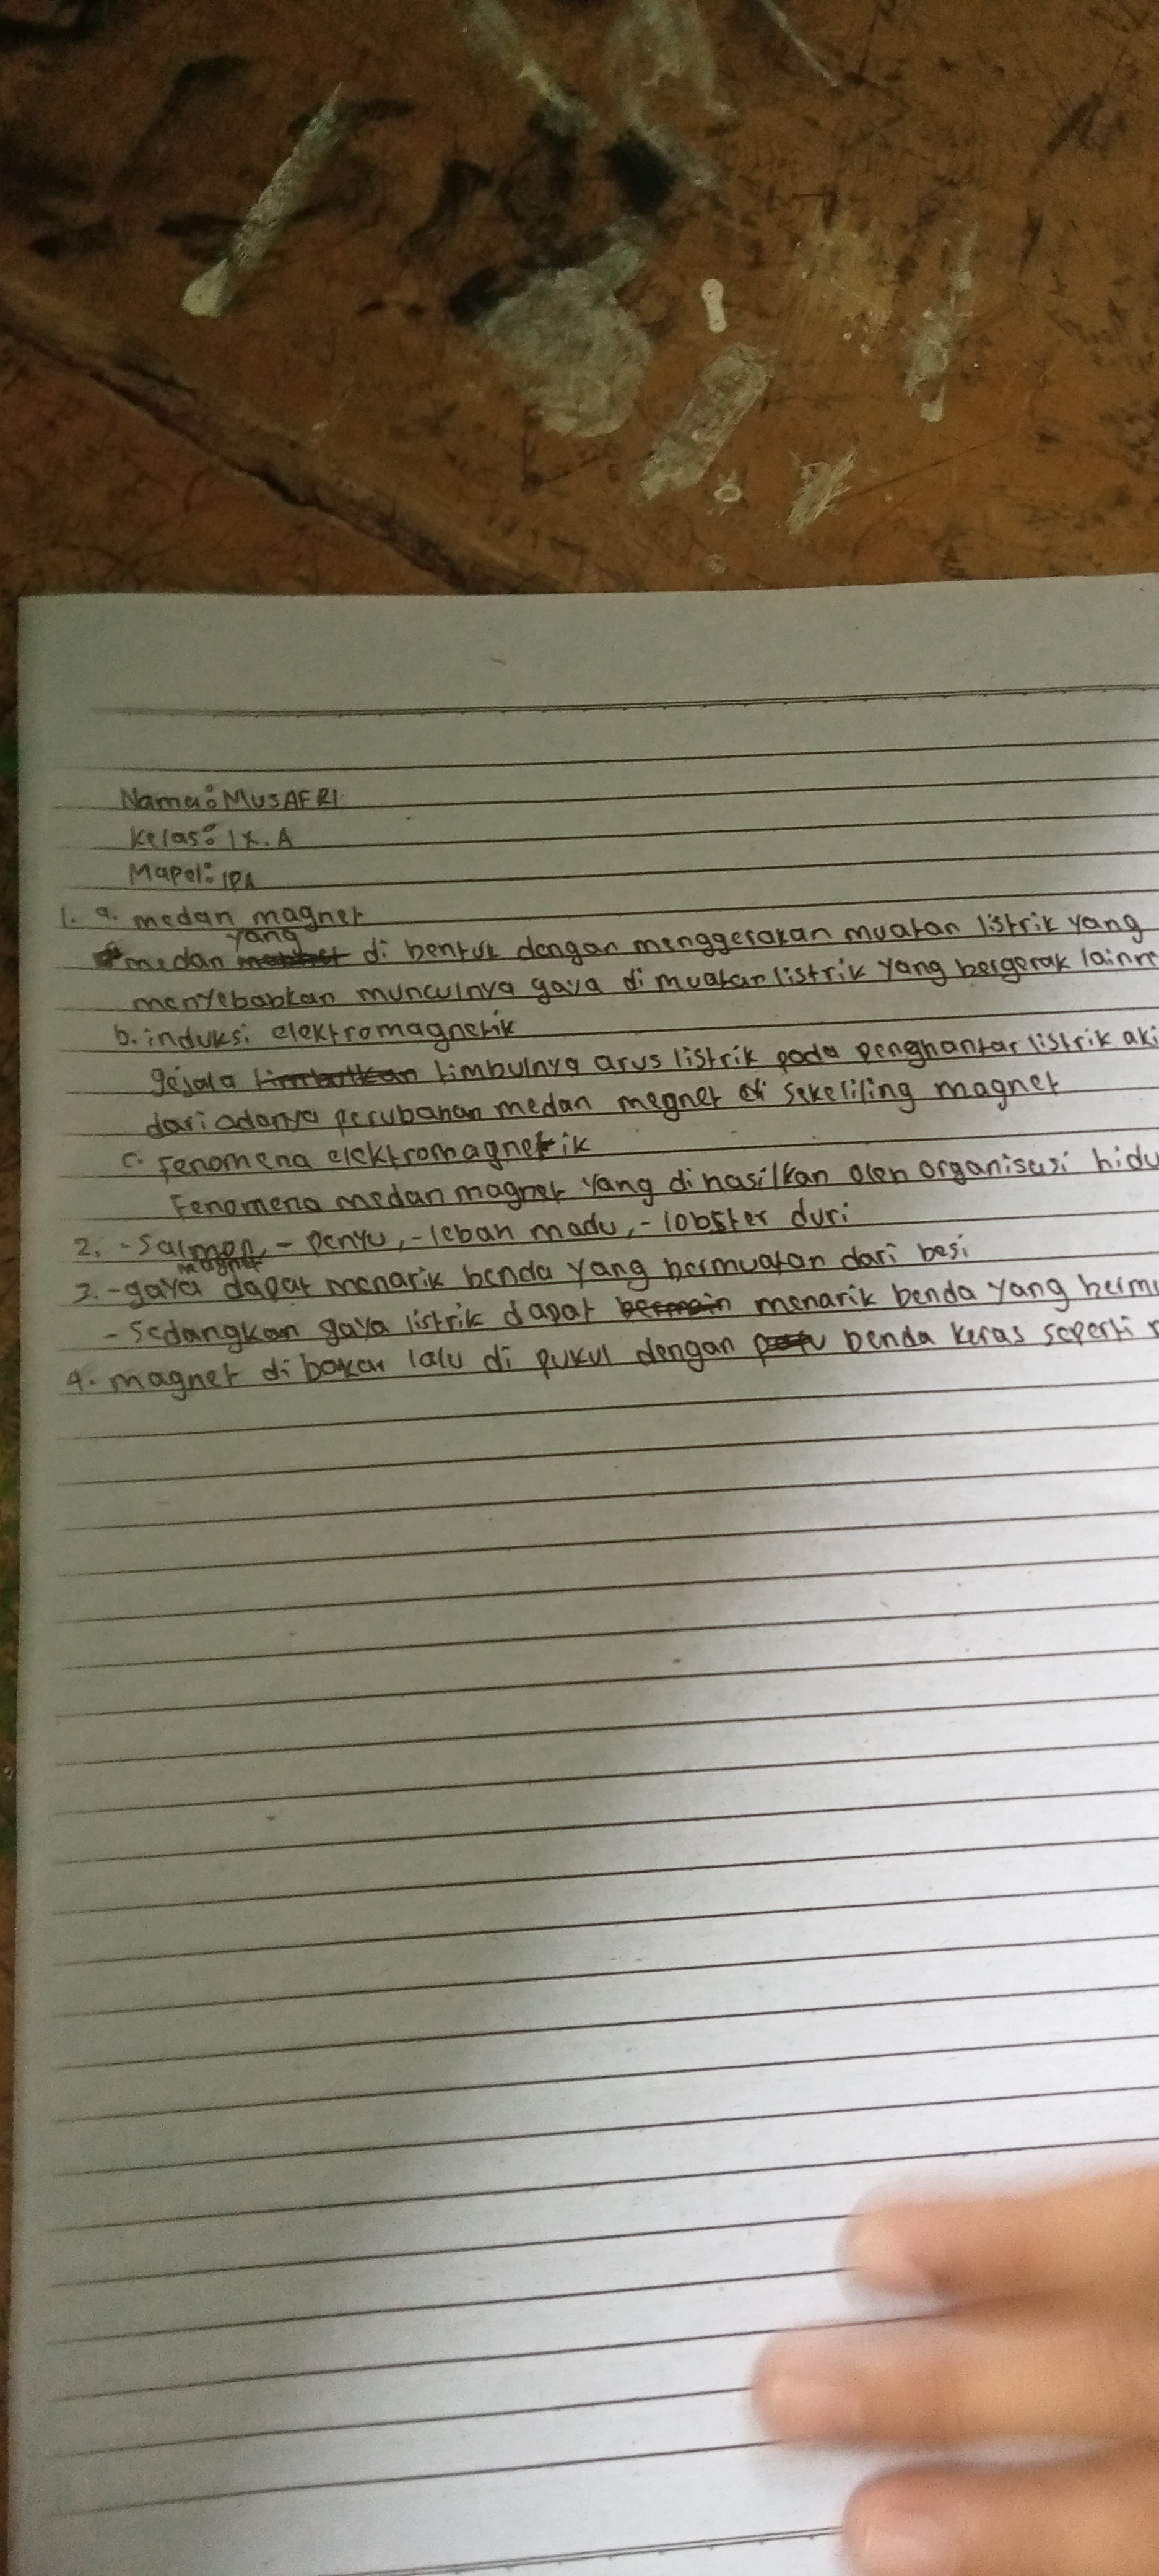 Nama: MUSAFRI
Kelas: IX.A
Mapel: IPA
1. a. medan magnet
medan yang di bentuk dengan menggerakan muatan listrik yang
menyebabkan munculnya gaya di muatan listrik yang bergerak lainn
b. induksi elektromagnetik
gejala timbulnya arus listrik pada penghantar listrik aki
dari adanya perubahan medan megnet di sekeliling magnet
c. Fenomena elektromagnetik
Fenomena medan magnet yang dihasilkan oleh organisasi hidu
2. - Salmon, - penyu, - leban madu, - lobster duri
3. - gaya magnet dapat menarik benda yang bermuatan dari besi
- Sedangkan gaya listrik dapat menarik benda yang berm
4. magnet di bakar lalu di pukul dengan benda keras seperti